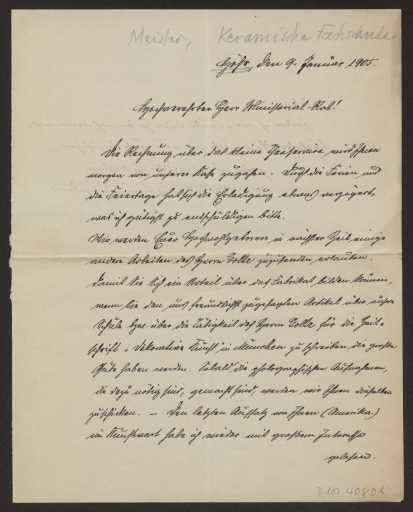 Meister, Keramische Fachschule
Höhr, den 9. Januar 1905.
Hochverehrter Herr Ministerial-Rat!
Die Rechnung über das kleine Theeservice wird Ihnen
morgen von unserer Kasse zugehen. Durch die Ferien und
die Feiertage hat sich die Erledigung etwas verzögert,
was ich gütigst zu entschuldigen bitte.
Wir werden Euer Hochwohlgeboren in nächster Zeit einige
andere Arbeiten des Herrn zuzusenden erlauben,
damit Sie sich ein Urteil über das Fabrikat bilden können,
wenn Sie den uns freundlichst zugesagten Artikel über unsere
Schule bzw. über die Tätigkeit des Herrn für die Zeit-
schrift "Dekorative Kunst" in München zu schreiben die große
Güte haben werden. Sobald die photographischen Aufnahmen,
die dazu nötig sind, gemacht sind, werden wir Ihnen dieselben
zuschicken. — Den letzten Aufsatz von Ihnen (Amerika)
im Kunstwart habe ich wieder mit großem Interesse
gelesen.